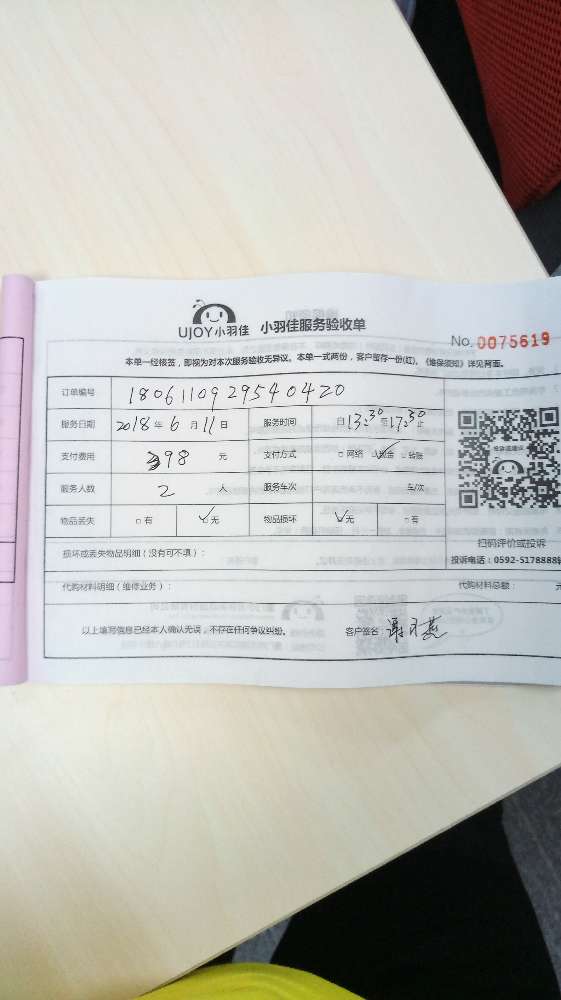 UJOY小羽佳 小羽佳服务验收单
No. 0075619
本单一经核签，即视为对本次服务验收无异议。本单一式两份，客户留存一份(红)。《维保须知》详见背面。
订单编号 1806110929540420
服务日期 2018 年 6 月 11 日 服务时间 自 13:30 至 17:30 止
支付费用 398 元 支付方式 □ 网络 □ 现金 □ 转账
服务人数 2 人 服务车次 车/次
物品丢失 □ 有 □ 无 物品损坏 □ 无 □ 有
扫码评价或投诉
损坏或丢失物品明细（没有可不填）：
投诉电话：0592-5178888
代购材料明细（维修业务）： 代购材料总额： 元
以上填写信息已经本人确认无误，不存在任何争议纠纷。 客户签名：谢 燕